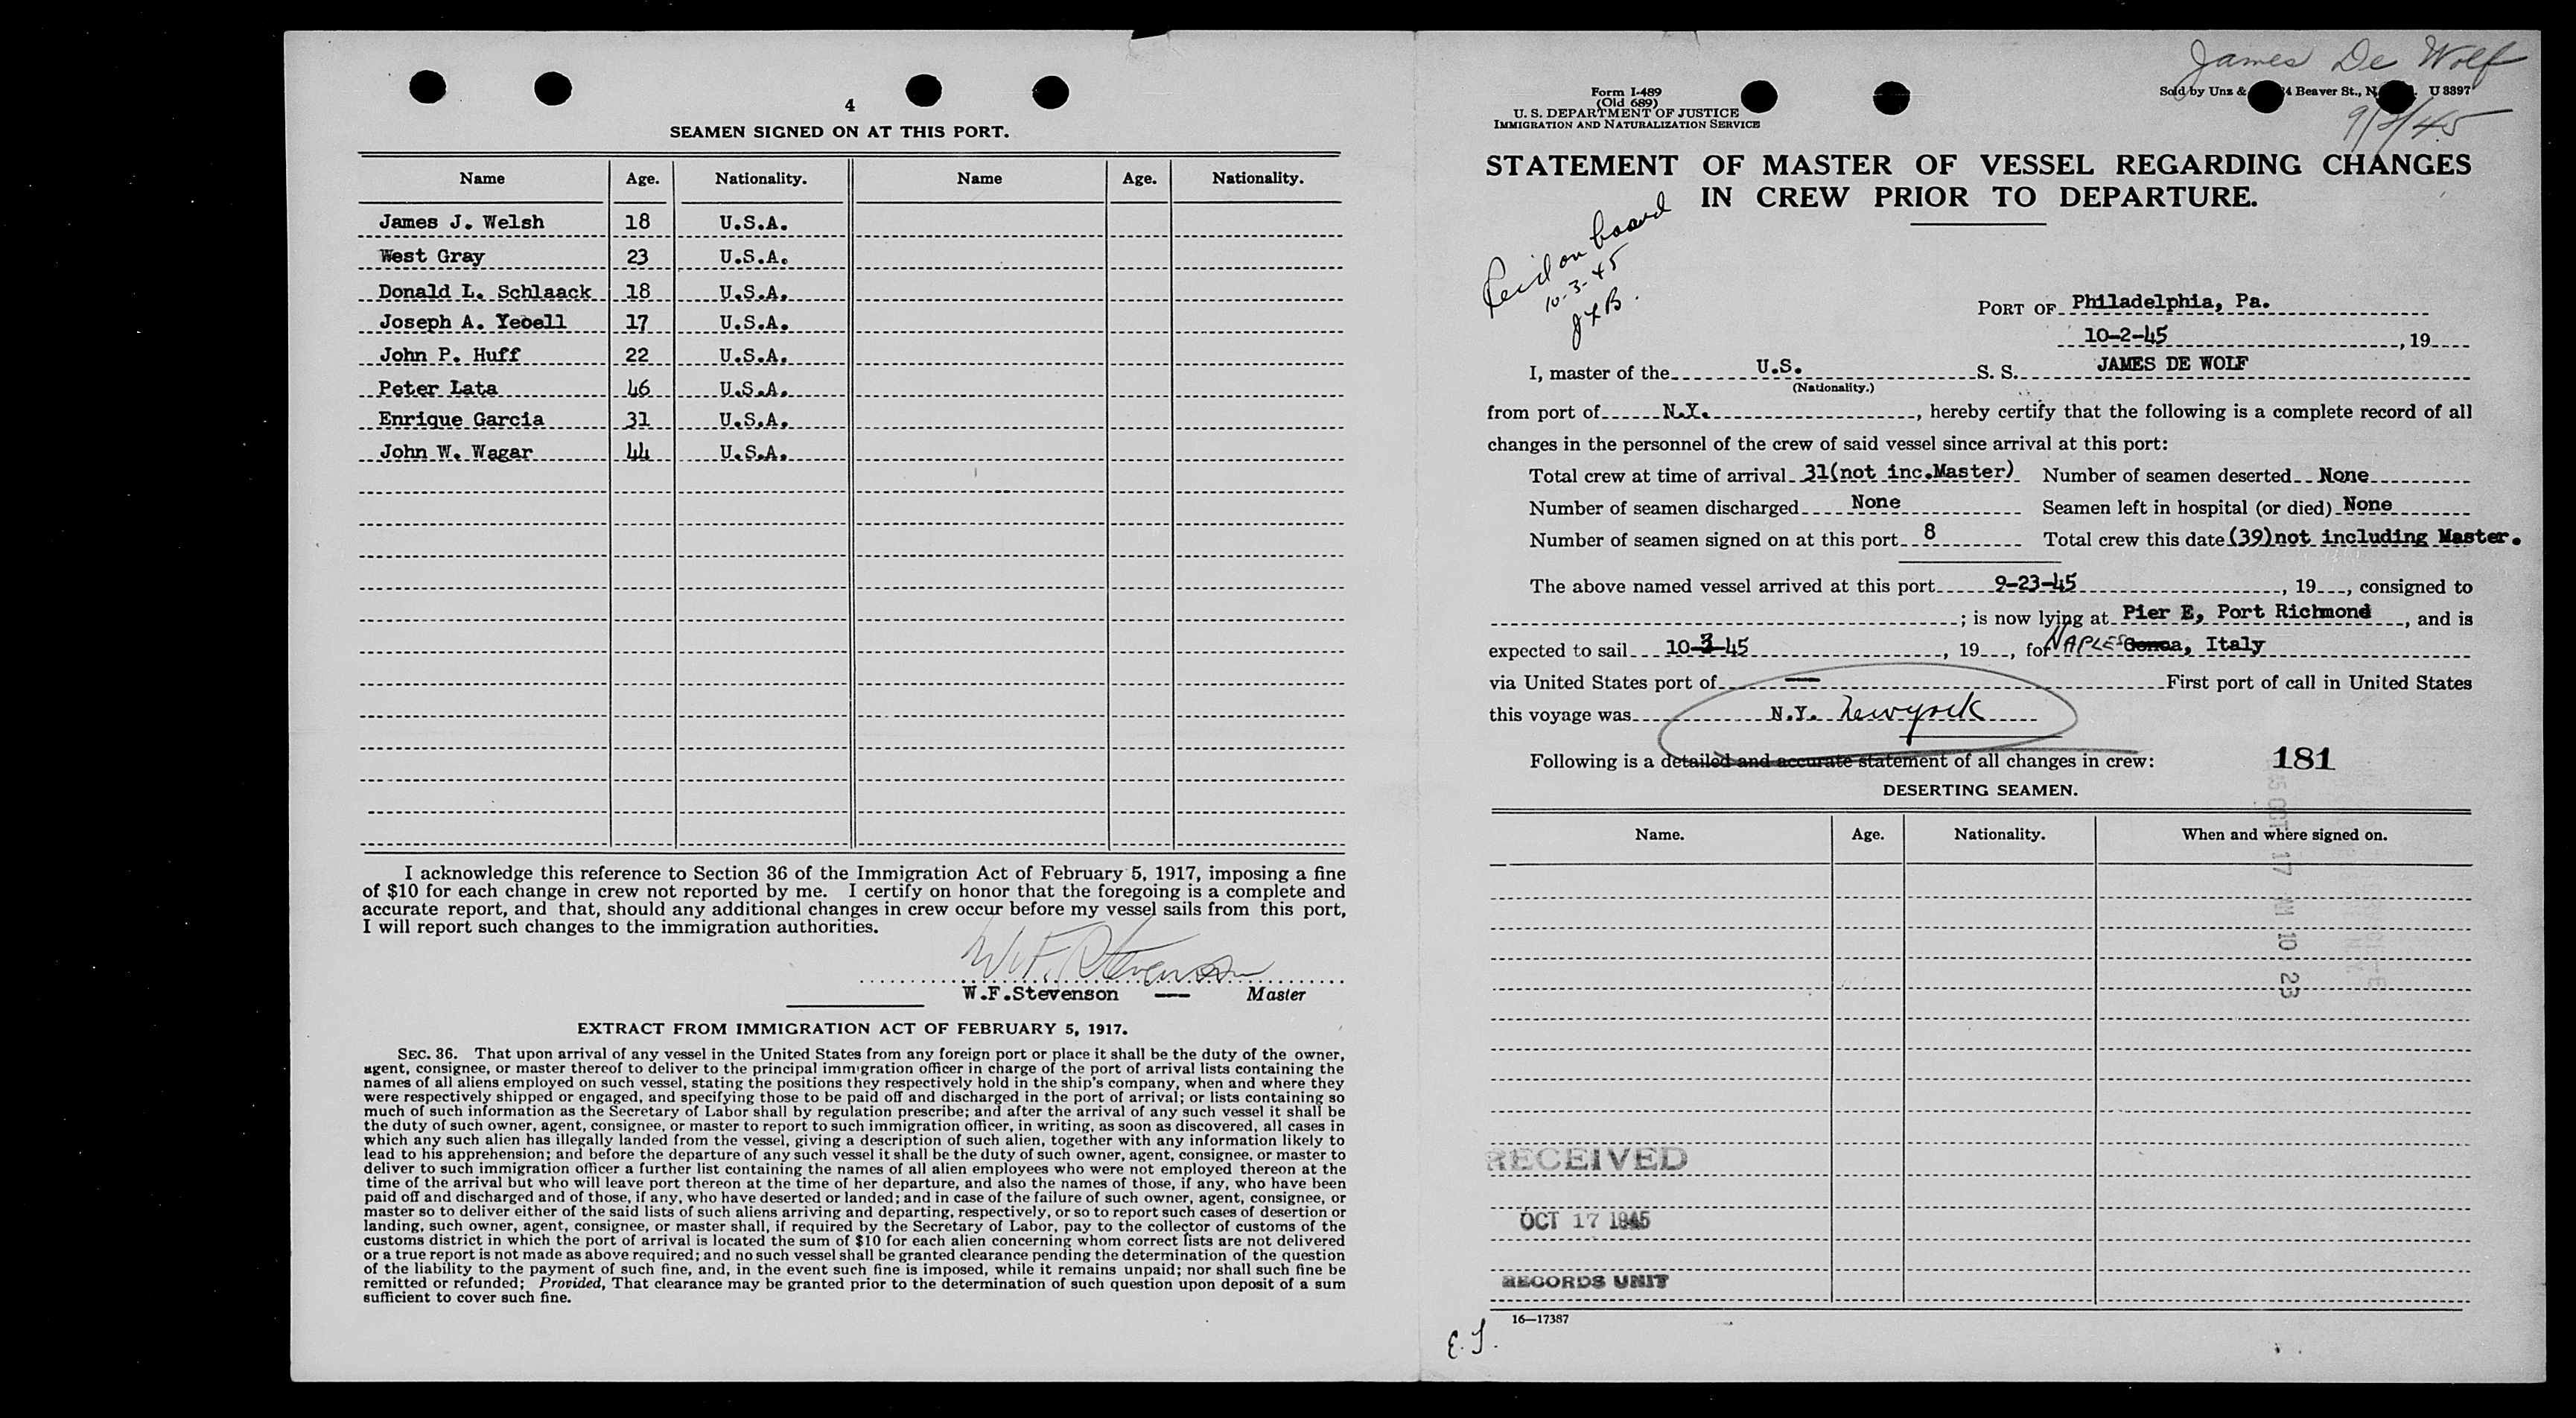 4
SEAMEN SIGNED ON AT THIS PORT.
Name Age. Nationality. Name Age. Nationality.
James J. Welsh 18 U.S.A.
West Gray 23 U.S.A.
Donald L. Schlaack 18 U.S.A.
Joseph A. Yeoell 17 U.S.A.
John P. Huff 22 U.S.A.
Peter Lata 46 U.S.A.
Enrique Garcia 31 U.S.A.
John W. Wagar 44 U.S.A.
I acknowledge this reference to Section 36 of the Immigration Act of February 5, 1917, imposing a fine
of $10 for each change in crew not reported by me. I certify on honor that the foregoing is a complete and
accurate report, and that, should any additional changes in crew occur before my vessel sails from this port,
I will report such changes to the immigration authorities.
W.F. Stevenson
W.F.Stevenson — Master
EXTRACT FROM IMMIGRATION ACT OF FEBRUARY 5, 1917.
SEC. 36. That upon arrival of any vessel in the United States from any foreign port or place it shall be the duty of the owner,
agent, consignee, or master thereof to deliver to the principal immigration officer in charge of the port of arrival lists containing the
names of all aliens employed on such vessel, stating the positions they respectively hold in the ship's company, when and where they
were respectively shipped or engaged, and specifying those to be paid off and discharged in the port of arrival; or lists containing so
much of such information as the Secretary of Labor shall by regulation prescribe; and after the arrival of any such vessel it shall be
the duty of such owner, agent, consignee, or master to report to such immigration officer, in writing, as soon as discovered, all cases in
which any such alien has illegally landed from the vessel, giving a description of such alien, together with any information likely to
lead to his apprehension; and before the departure of any such vessel it shall be the duty of such owner, agent, consignee, or master to
deliver to such immigration officer a further list containing the names of all alien employees who were not employed thereon at the
time of the arrival but who will leave port thereon at the time of her departure, and also the names of those, if any, who have been
paid off and discharged and of those, if any, who have deserted or landed; and in case of the failure of such owner, agent, consignee, or
master so to deliver either of the said lists of such aliens arriving and departing, respectively, or so to report such cases of desertion or
landing, such owner, agent, consignee, or master shall, if required by the Secretary of Labor, pay to the collector of customs of the
customs district in which the port of arrival is located the sum of $10 for each alien concerning whom correct lists are not delivered
or a true report is not made as above required; and no such vessel shall be granted clearance pending the determination of the question
of the liability to the payment of such fine, and, in the event such fine is imposed, while it remains unpaid; nor shall such fine be
remitted or refunded; Provided, That clearance may be granted prior to the determination of such question upon deposit of a sum
sufficient to cover such fine.
James De Wolf
Form I-489
(Old 689)
U. S. DEPARTMENT OF JUSTICE
IMMIGRATION AND NATURALIZATION SERVICE
Sold by Unz & 4 Beaver St., N U 8397
STATEMENT OF MASTER OF VESSEL REGARDING CHANGES
IN CREW PRIOR TO DEPARTURE.
Rec'd on board
10-3-45
PORT OF Philadelphia, Pa.
10-2-45, 19
I, master of the U.S. S. S. JAMES DE WOLF
(Nationality.)
from port of N.Y., hereby certify that the following is a complete record of all
changes in the personnel of the crew of said vessel since arrival at this port:
Total crew at time of arrival 31(not inc.Master) Number of seamen deserted None
Number of seamen discharged None Seamen left in hospital (or died) None
Number of seamen signed on at this port 8 Total crew this date (39)not including Master.
The above named vessel arrived at this port 9-23-45, 19, consigned to
; is now lying at Pier E, Port Richmond, and is
expected to sail 10-3-45, 19, for NAPLES Genoa, Italy
via United States port of — First port of call in United States
this voyage was N.Y. New york
Following is a detailed and accurate statement of all changes in crew:
181
DESERTING SEAMEN.
Name. Age. Nationality. When and where signed on.
RECEIVED
OCT 17 1945
RECORDS UNIT
16—17387